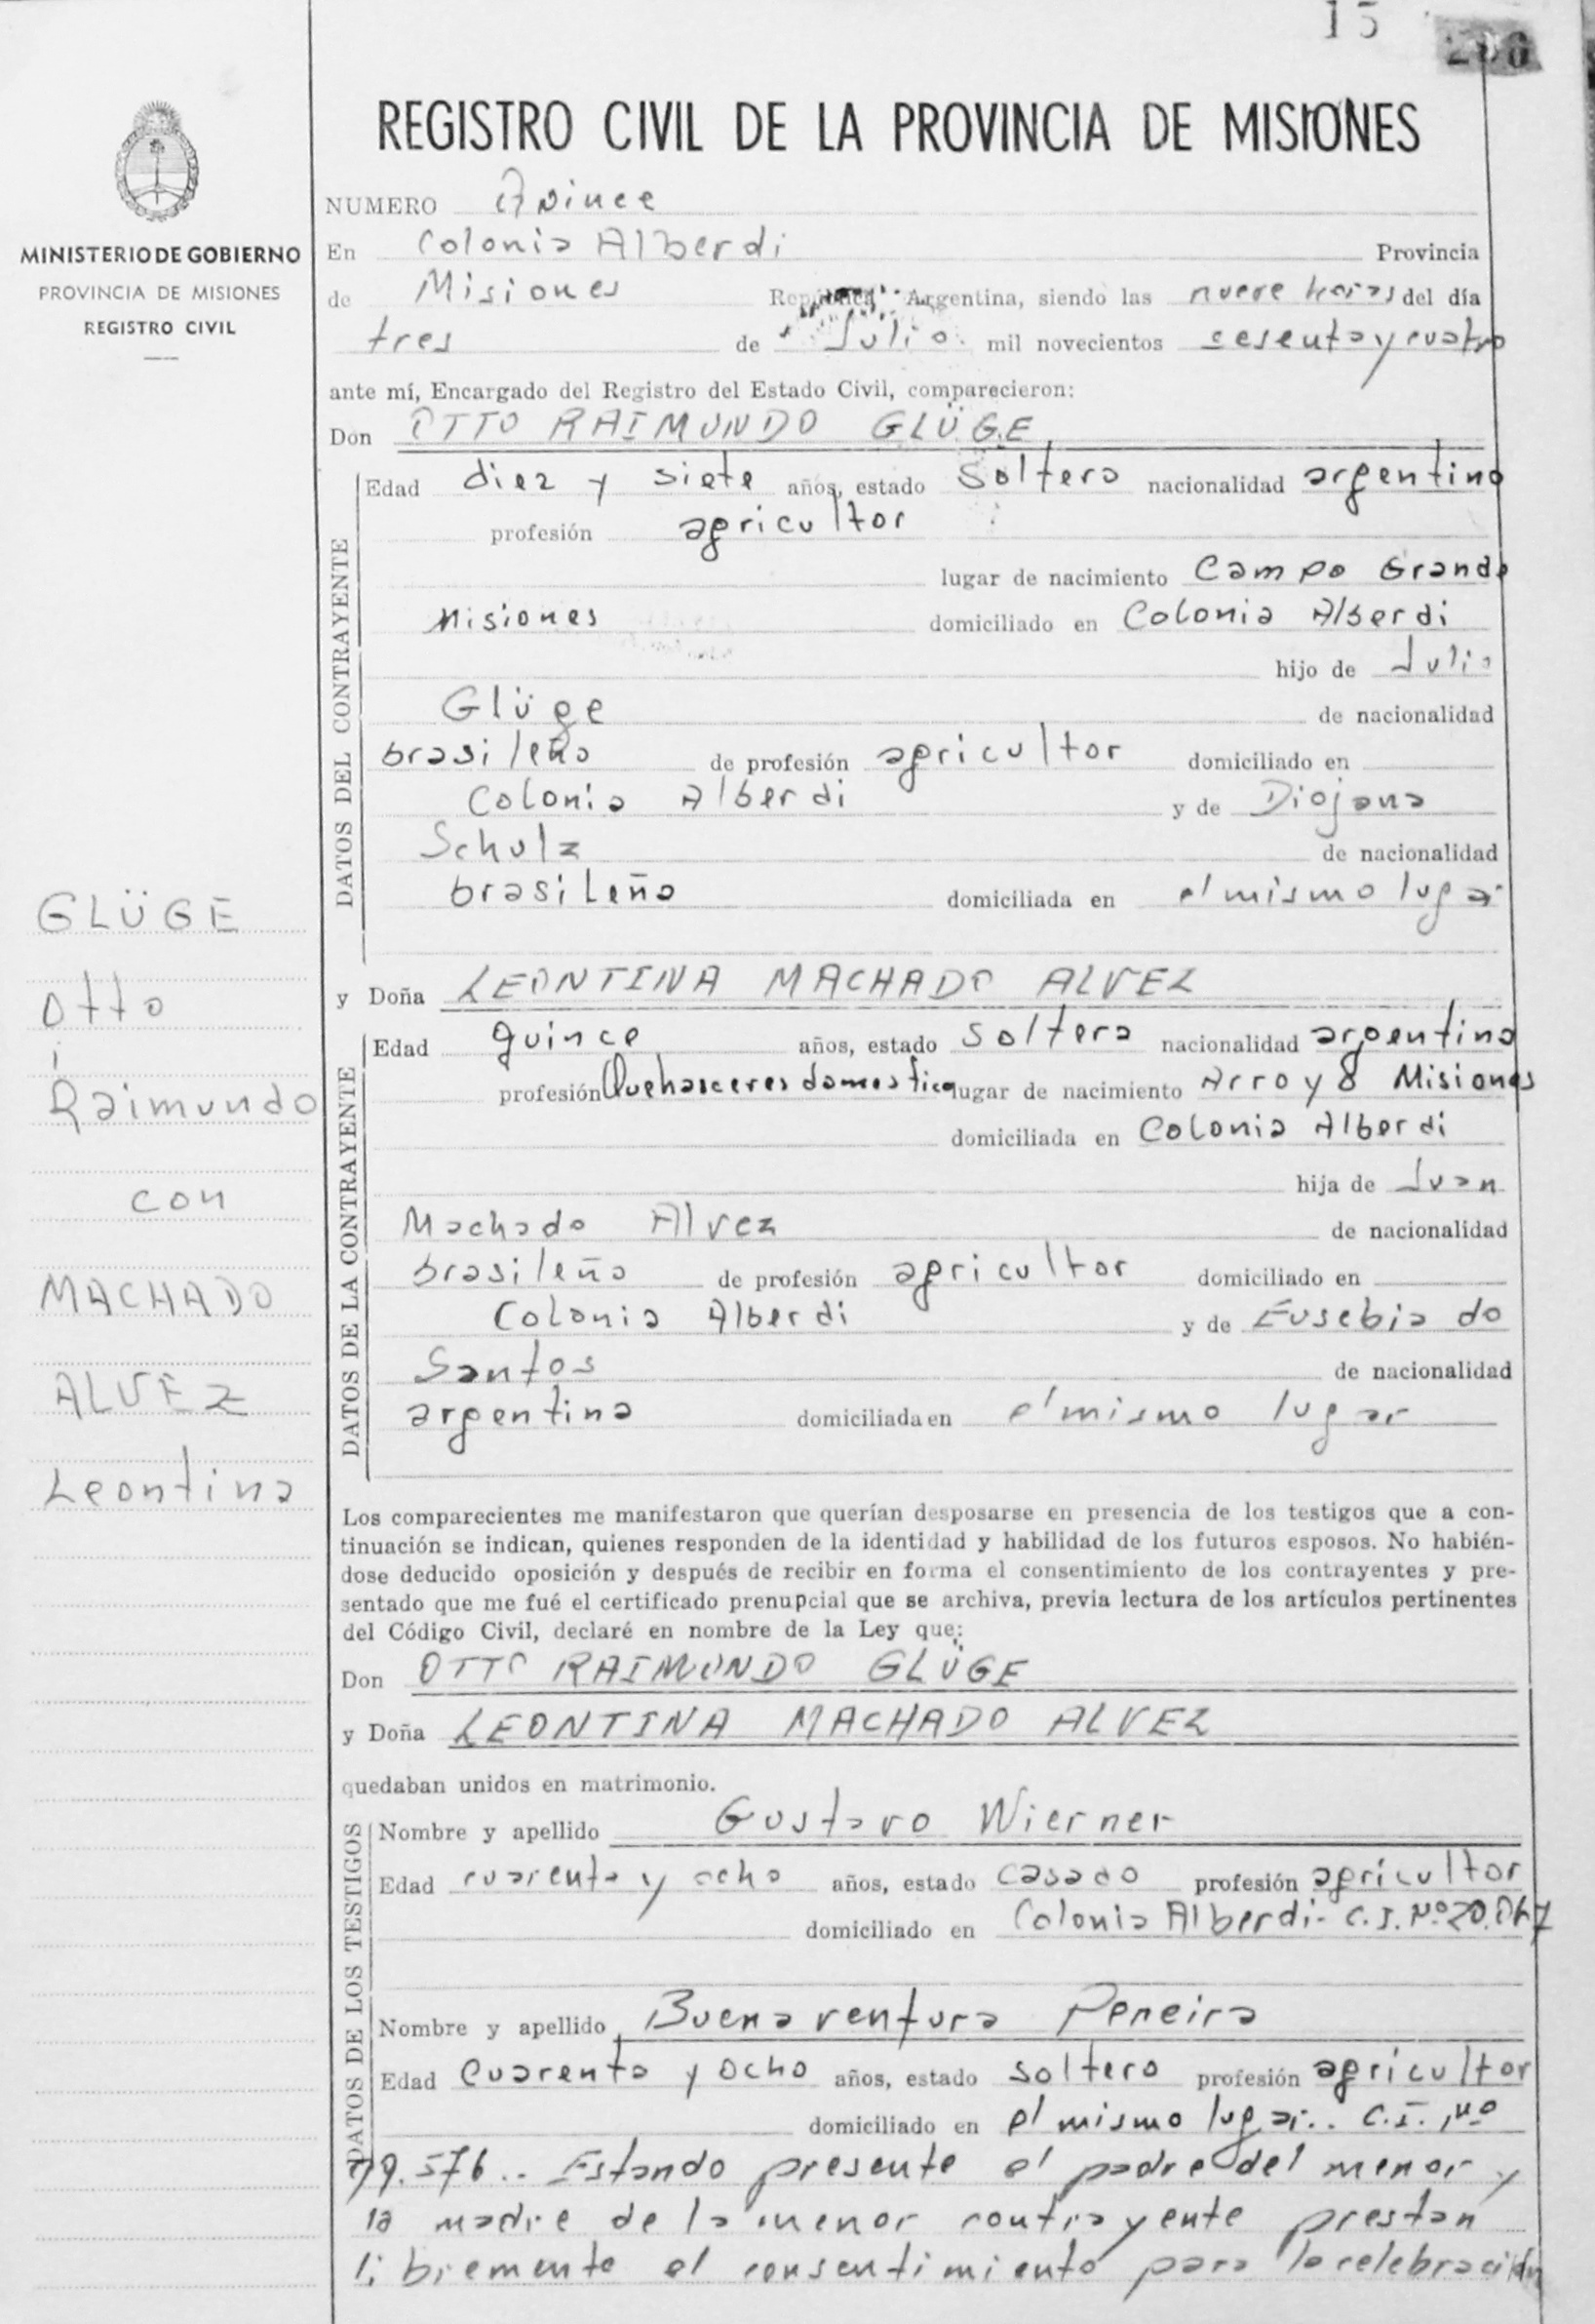 15
200
REGISTRO CIVIL DE LA PROVINCIA DE MISIONES
MINISTERIO DE GOBIERNO
PROVINCIA DE MISIONES
REGISTRO CIVIL
NUMERO Quince
En Colonia Alberdi Provincia
de Misiones República Argentina, siendo las nueve horas del día
tres de Julio mil novecientos sesenta y cuatro
ante mí, Encargado del Registro del Estado Civil, comparecieron:
Don OTTO RAIMUNDO GLÜGE
DATOS DEL CONTRAYENTE
Edad diez y siete años, estado Soltero nacionalidad argentino
profesión agricultor
lugar de nacimiento Campo Grande
Misiones domiciliado en Colonia Alberdi
hijo de Julio
Glüge de nacionalidad
brasileño de profesión agricultor domiciliado en
Colonia Alberdi y de Diojana
Schulz de nacionalidad
brasileña domiciliada en el mismo lugar
y Doña LEONTINA MACHADO ALVEZ
DATOS DE LA CONTRAYENTE
Edad quince años, estado Soltera nacionalidad argentina
profesión Quehasceres domestica lugar de nacimiento Arroyo 8 Misiones
domiciliada en Colonia Alberdi
hija de Juan
Machado Alvez de nacionalidad
brasileño de profesión agricultor domiciliado en
Colonia Alberdi y de Eusebia do
Santos de nacionalidad
argentina domiciliada en el mismo lugar
GLÜGE
Otto
Raimundo
con
MACHADO
ALVEZ
Leontina
Los comparecientes me manifestaron que querían desposarse en presencia de los testigos que a con-
tinuación se indican, quienes responden de la identidad y habilidad de los futuros esposos. No habién-
dose deducido oposición y después de recibir en forma el consentimiento de los contrayentes y pre-
sentado que me fué el certificado prenupcial que se archiva, previa lectura de los artículos pertinentes
del Código Civil, declaré en nombre de la Ley que:
Don OTTO RAIMUNDO GLÜGE
y Doña LEONTINA MACHADO ALVEZ
quedaban unidos en matrimonio.
DATOS DE LOS TESTIGOS
Nombre y apellido Gustavo Wierner
Edad cuarenta y ocho años, estado casado profesión agricultor
domiciliado en Colonia Alberdi- C.I. Nº
Nombre y apellido Buenaventura Pereira
Edad Cuarenta y ocho años, estado soltero profesión agricultor
domiciliado en el mismo lugar.. C.I. Nº
79.576.. Estando presente el padre del menor y
la madre de la menor contrayente prestan
libremente el consentimiento para la celebración